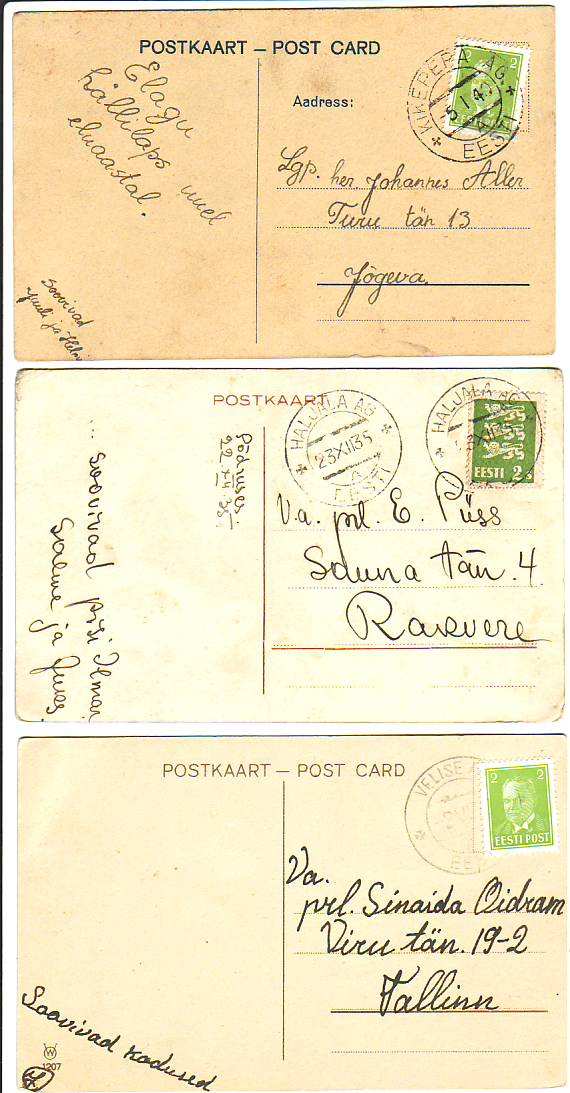 POSTKAART — POST CARD
Elagu
hällilaps uuel
eluaastal.
Soovivad
ja Helmi
Aadress:
KIKEPERA AG.
5 I 40
EESTI
2 2
Lgp. her. Johannes Aller
Turu tän 13
Jõgeva.
POSTKAART
HALJALA AG
23 XII 35
EESTI
HALJALA AG
XII 35
EESTI 2 s
Põdruses.
22. XII 35.
... soovivad prl Ilmari
Salme ja
V.a. prl. E. Püss
Sauna tän. 4
Rakvere
POSTKAART — POST CARD
VELISE
EE
2 2
EESTI POST
Va.
prl. Sinaida Oidram
Viru tän. 19-2
Tallinn
Soovivad kodused
W
1207